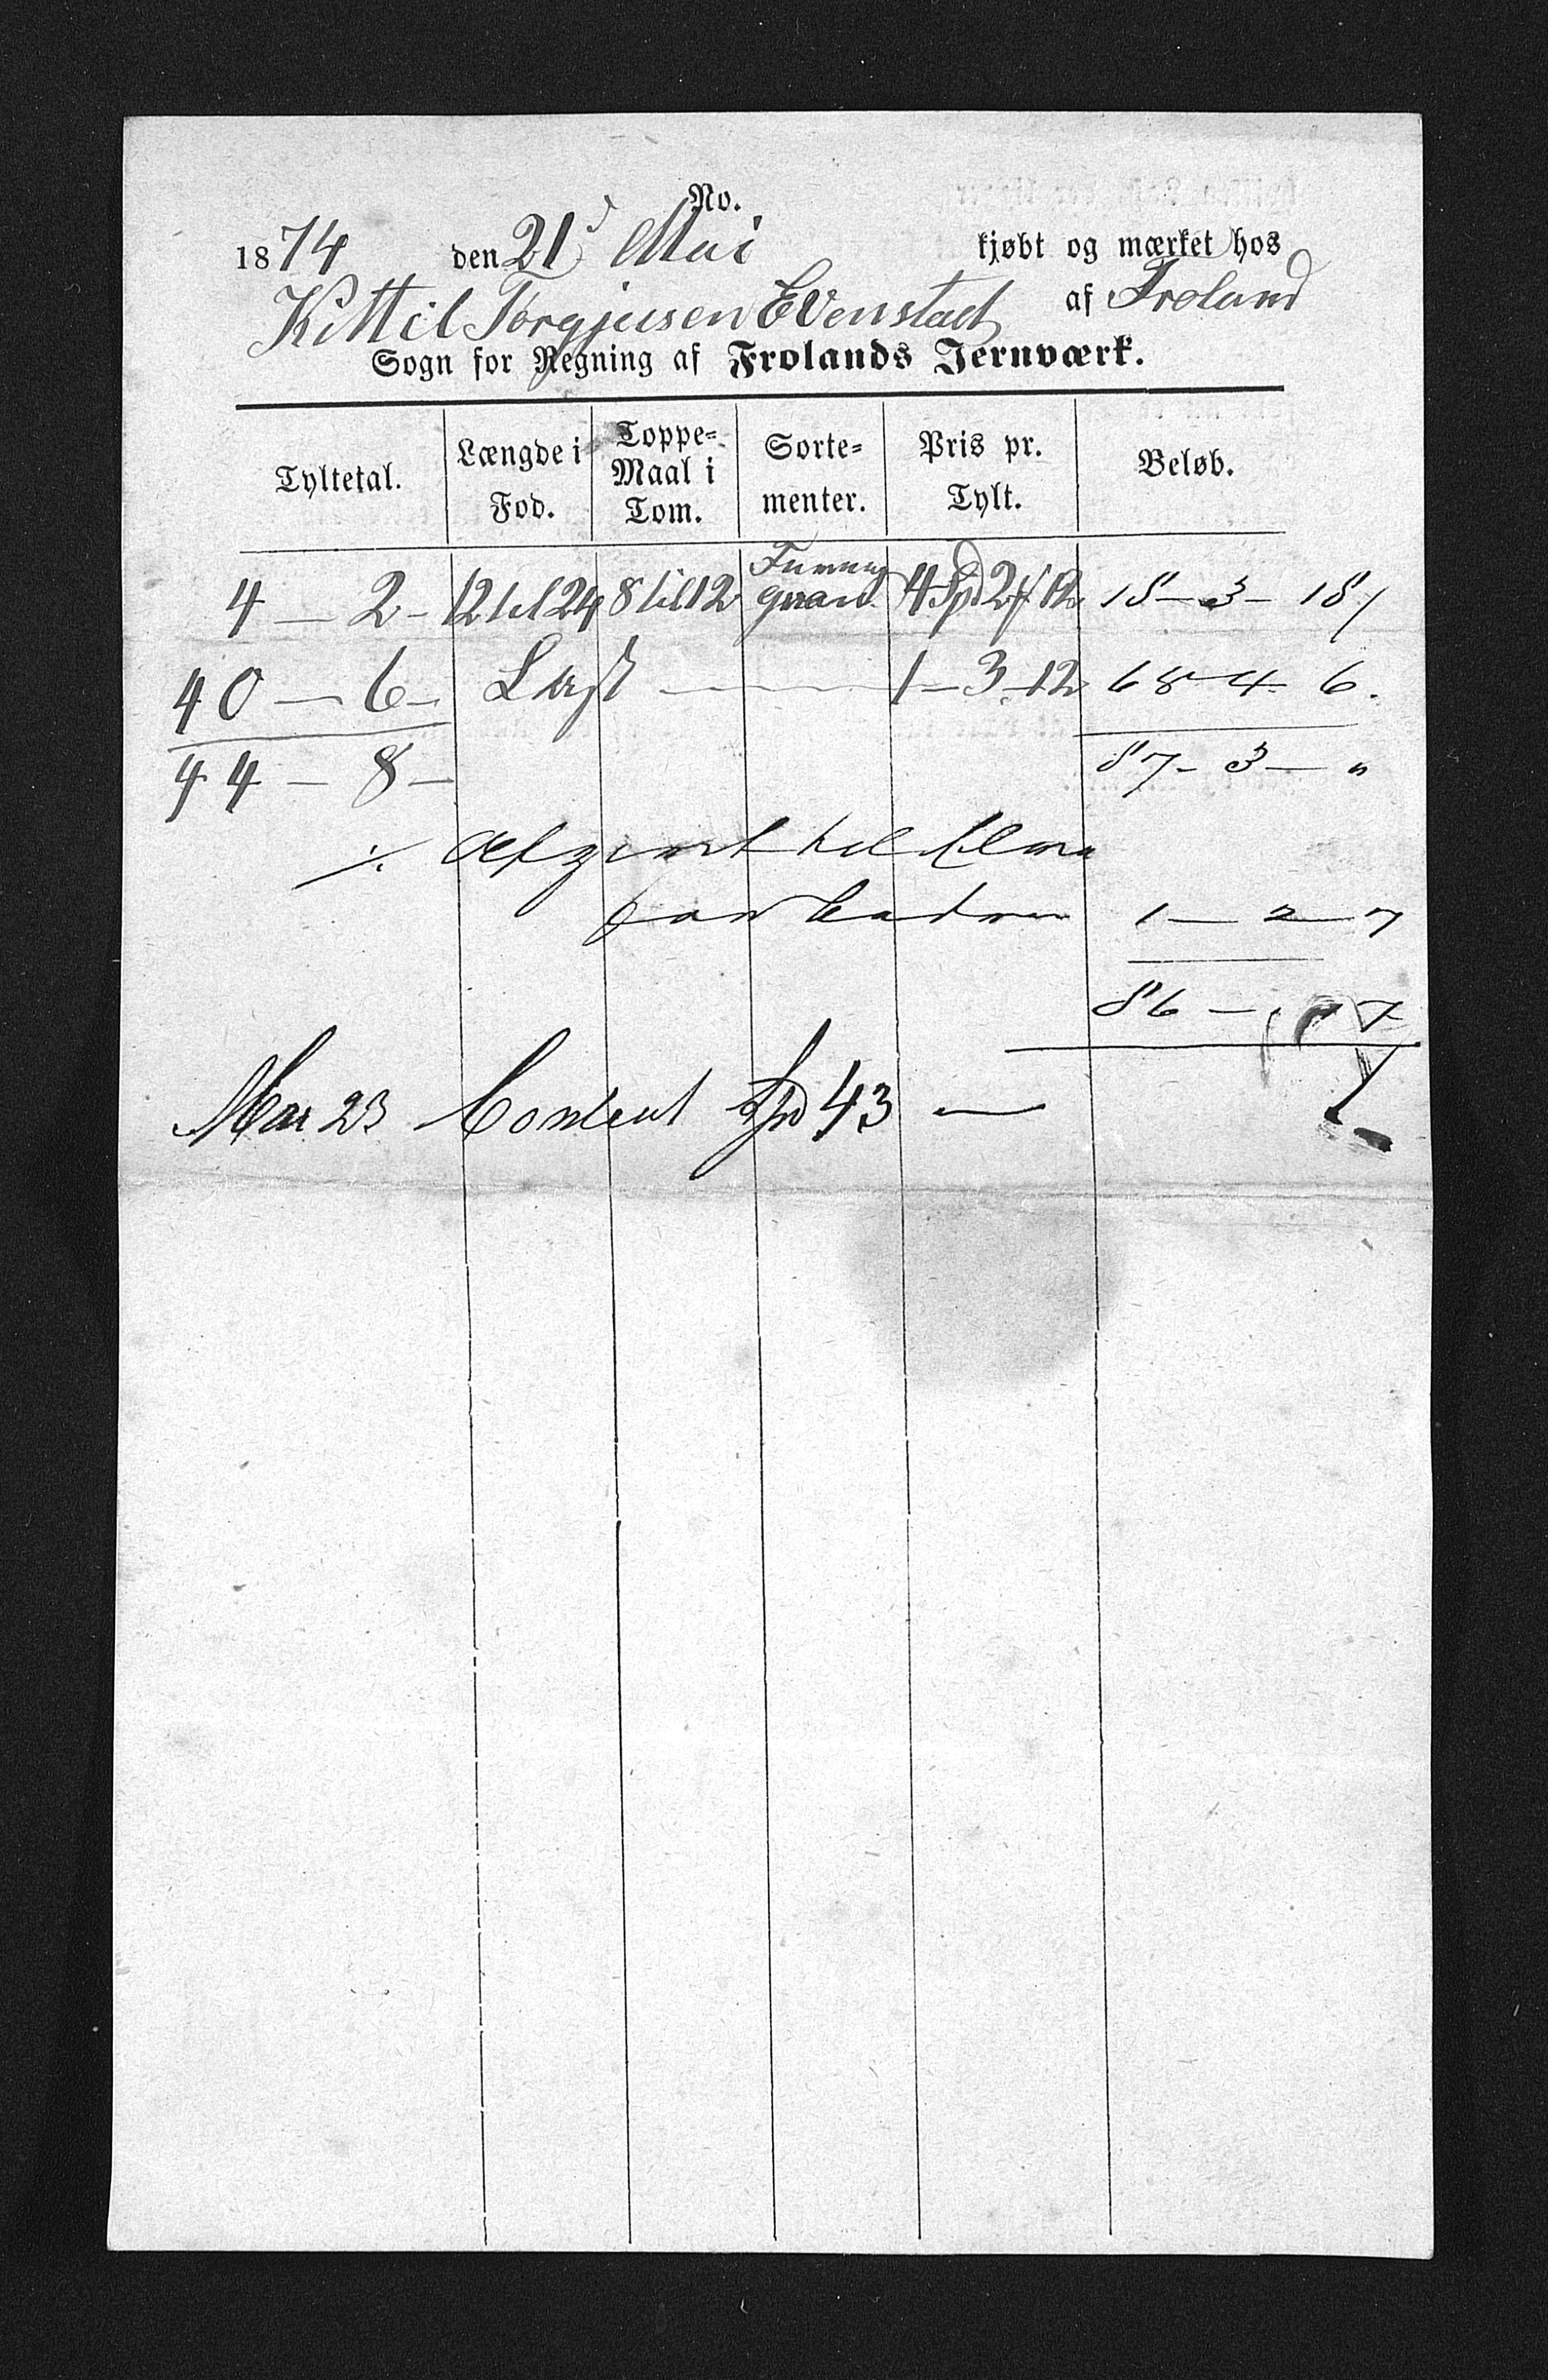 No.
1874 den 21d Mai kjøbt og mærket hos
Kittil Torgjusen Evenstad af Froland
Sogn for Regning af Frolands Jernværk.
Tyltetal. Længde i Fod. Toppe-Maal i Tom. Sorte-menter. Pris pr. Tylt. Beløb.
4 — 2 - 12 til 24 8 til 12 Furu og gran 4 Spd 2 ƒ 12 18 — 3 — 18
40 — 6 - Last 1 — 3 - 12 68 - 4 - 6.
44 — 8 — 87 - 3 — "
⁒ Afgivt til
1 — 2 — 7
86 —
Mai 23 Content Spd 43 —